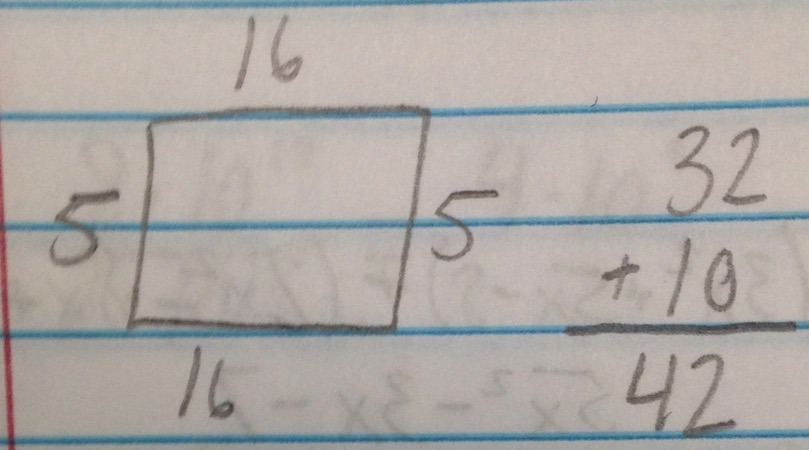 16
5 5
16
32
+ 10
42